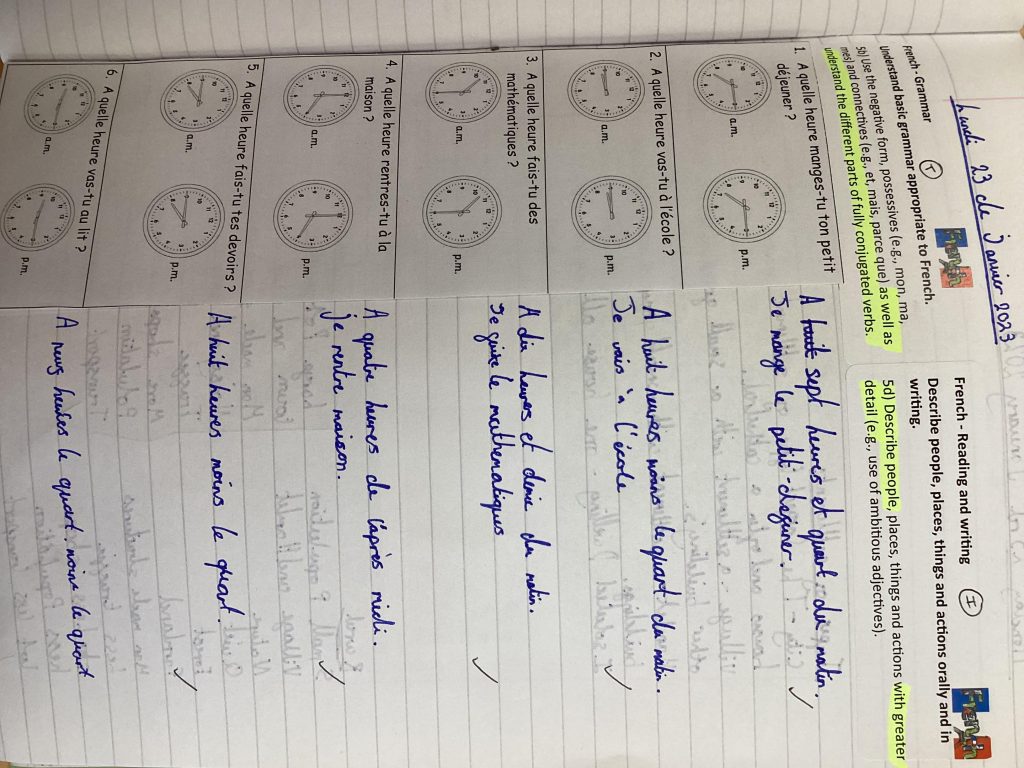 Lundi 23 de Janvier 2023
French - Grammar (T)
Understand basic grammar appropriate to French.
5b) Use the negative form, possessives (e.g., mon, ma,
mes) and connectives (e.g., et, mais, parce que) as well as
understand the different parts of fully conjugated verbs.
French
French - Reading and writing (I)
Describe people, places, things and actions orally and in
writing.
5d) Describe people, places, things and actions with greater
detail (e.g., use of ambitious adjectives).
French
1. A quelle heure manges-tu ton petit
déjeuner ?
a.m.
p.m.
A sept heures et quart du matin.
Je mange le petit-dejuner.
2. A quelle heure vas-tu à l'école ?
a.m.
p.m.
A huit heures moins le quart du matin.
Je vais à l'école
3. A quelle heure fais-tu des
mathématiques ?
a.m.
p.m.
A dix heures et demie du matin.
Je le mathematiques
4. A quelle heure rentres-tu à la
maison ?
a.m.
p.m.
A quatre heures de l'après midi.
je rentre maison.
5. A quelle heure fais-tu tes devoirs ?
a.m.
p.m.
A huit heures moins le quart.
6. A quelle heure vas-tu au lit ?
a.m.
p.m.
A neuf heures le quart. moins le quart